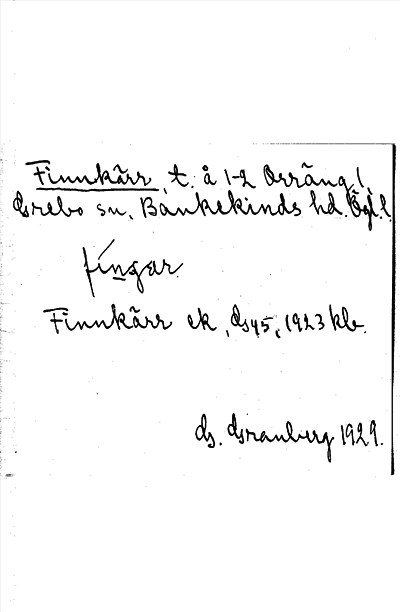 Finnkärr, t. å 1-2 Orräng,
Grebo sn, Bankekinds hd. Ögl.
fíngar
Finnkärr ek, G45, 1923 kb.
G. Granberg 1929.